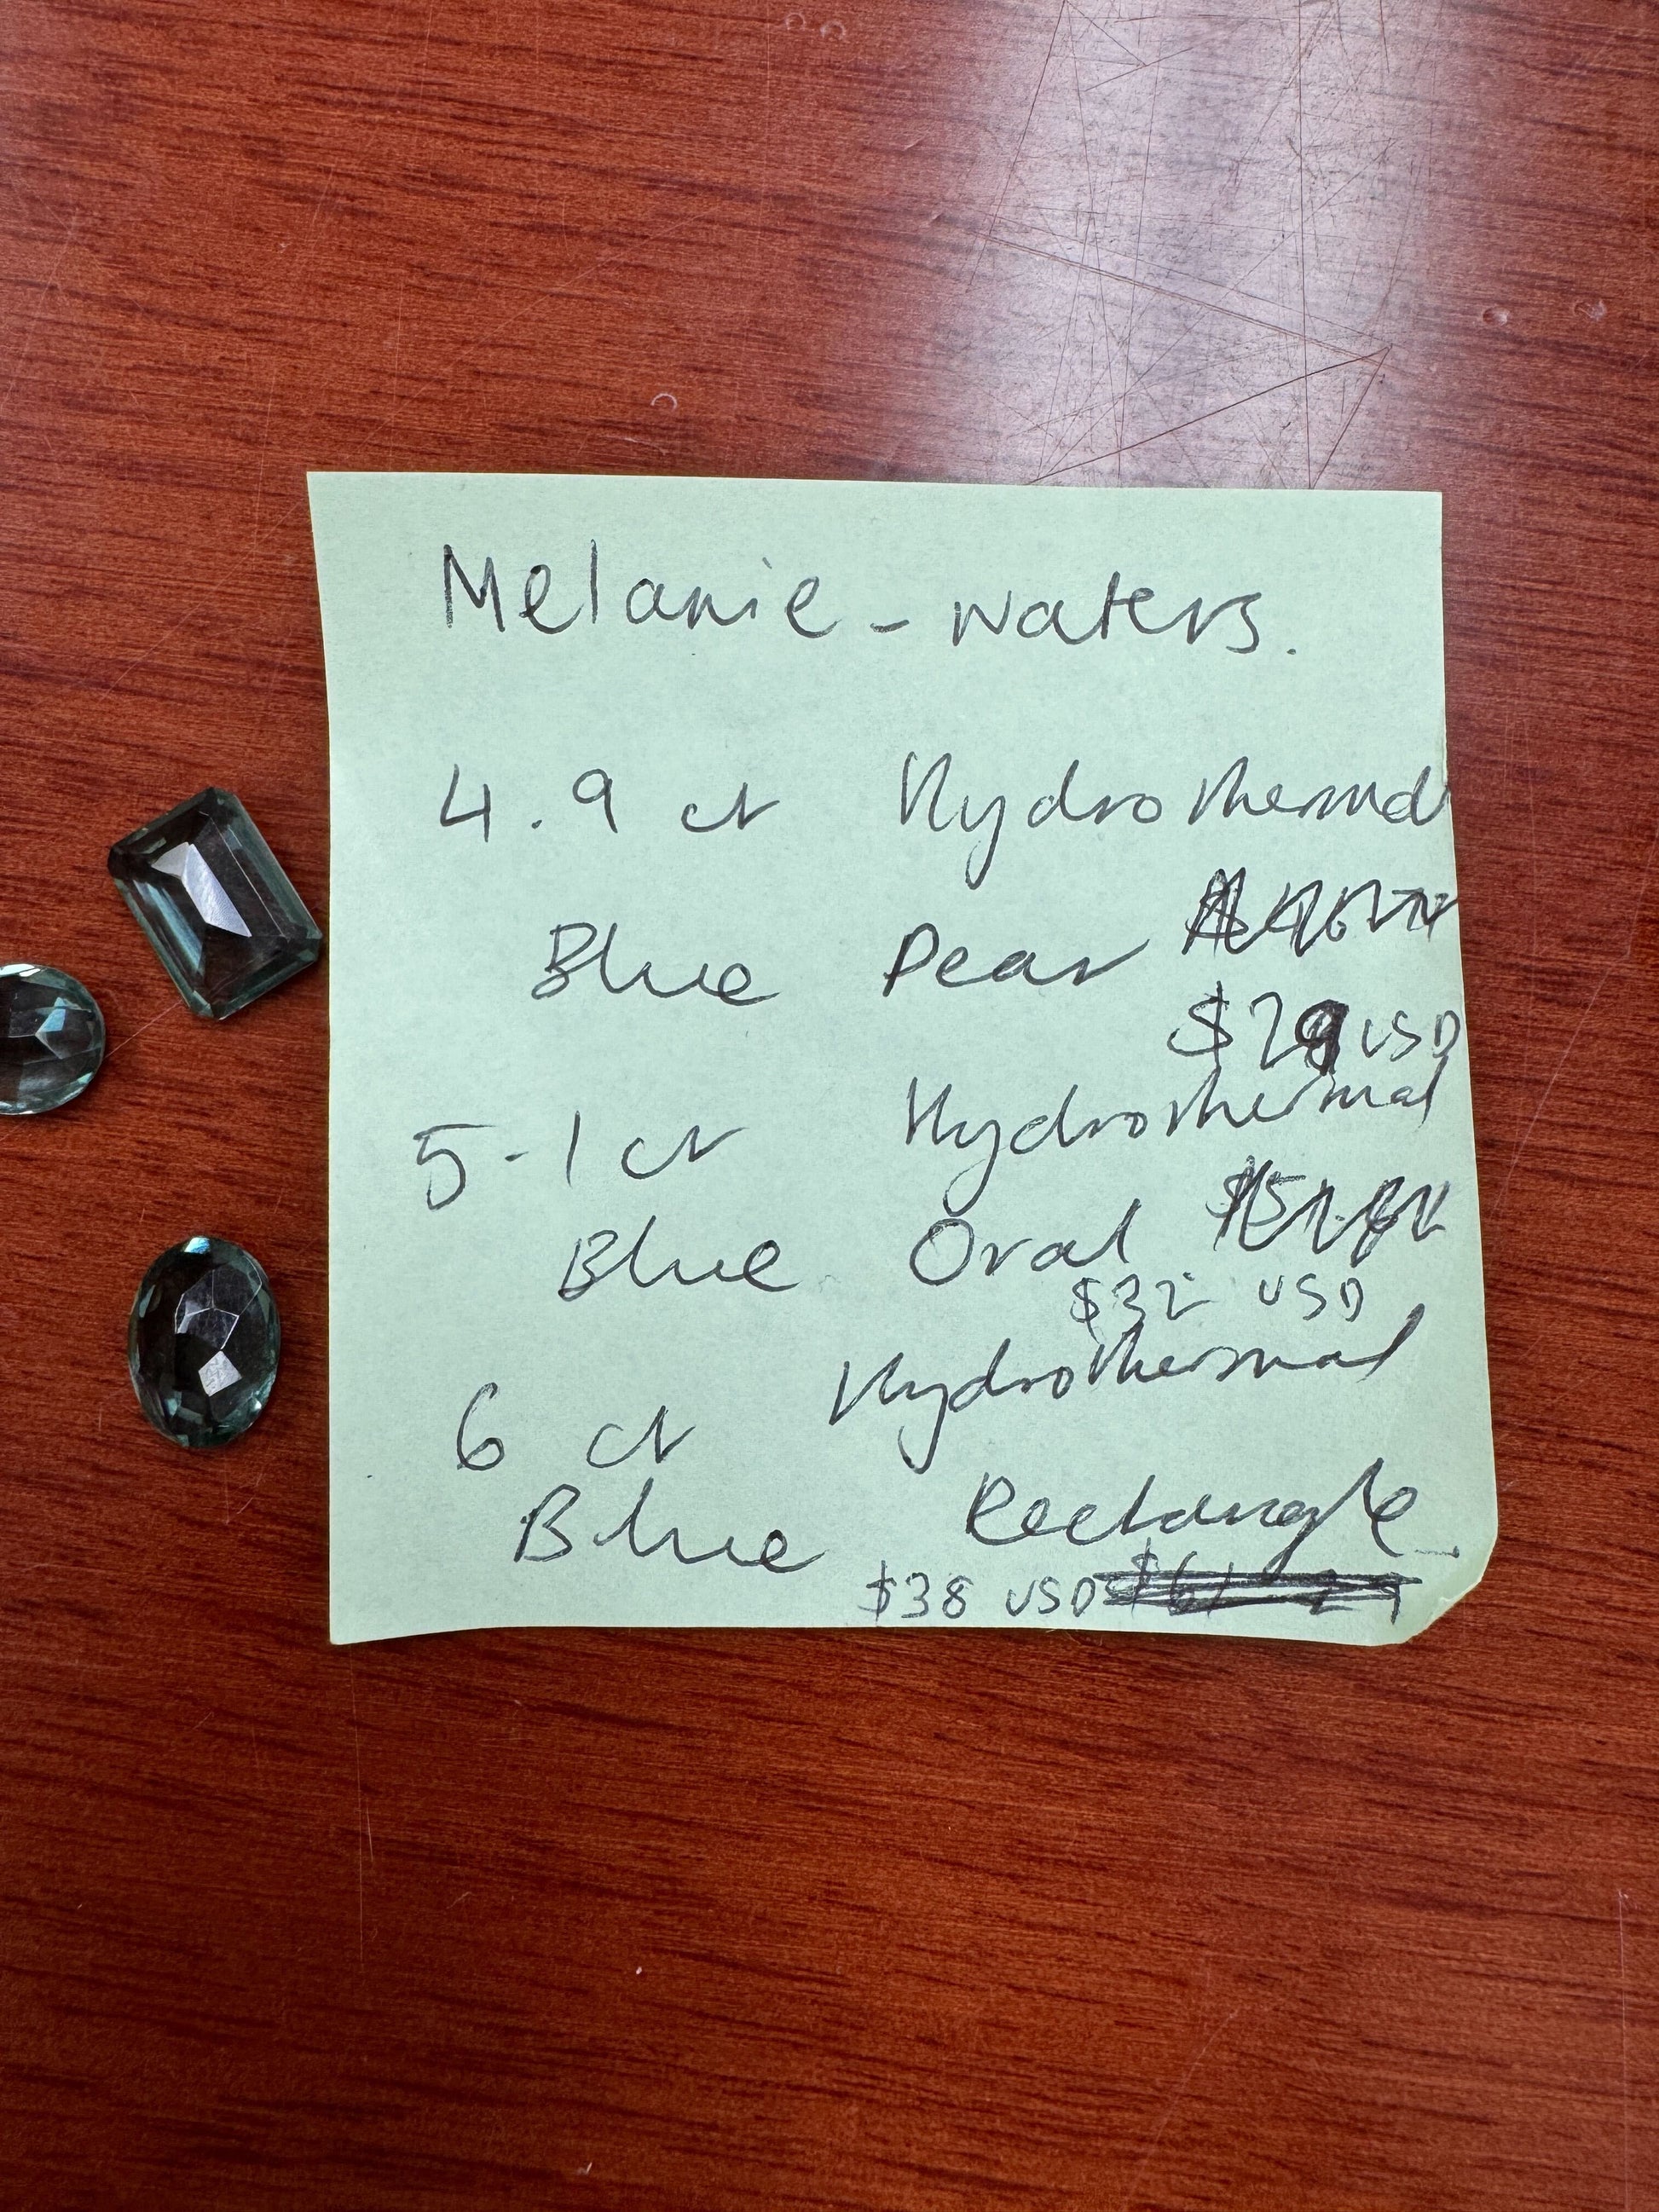 Melanie - waters.
4.9 ct Hydrothermal
Blue Pear
$29 USD
5.1 ct Hydrothermal
Blue Oval
$32 USD
6 ct Hydrothermal
Blue Rectangle
$38 USD